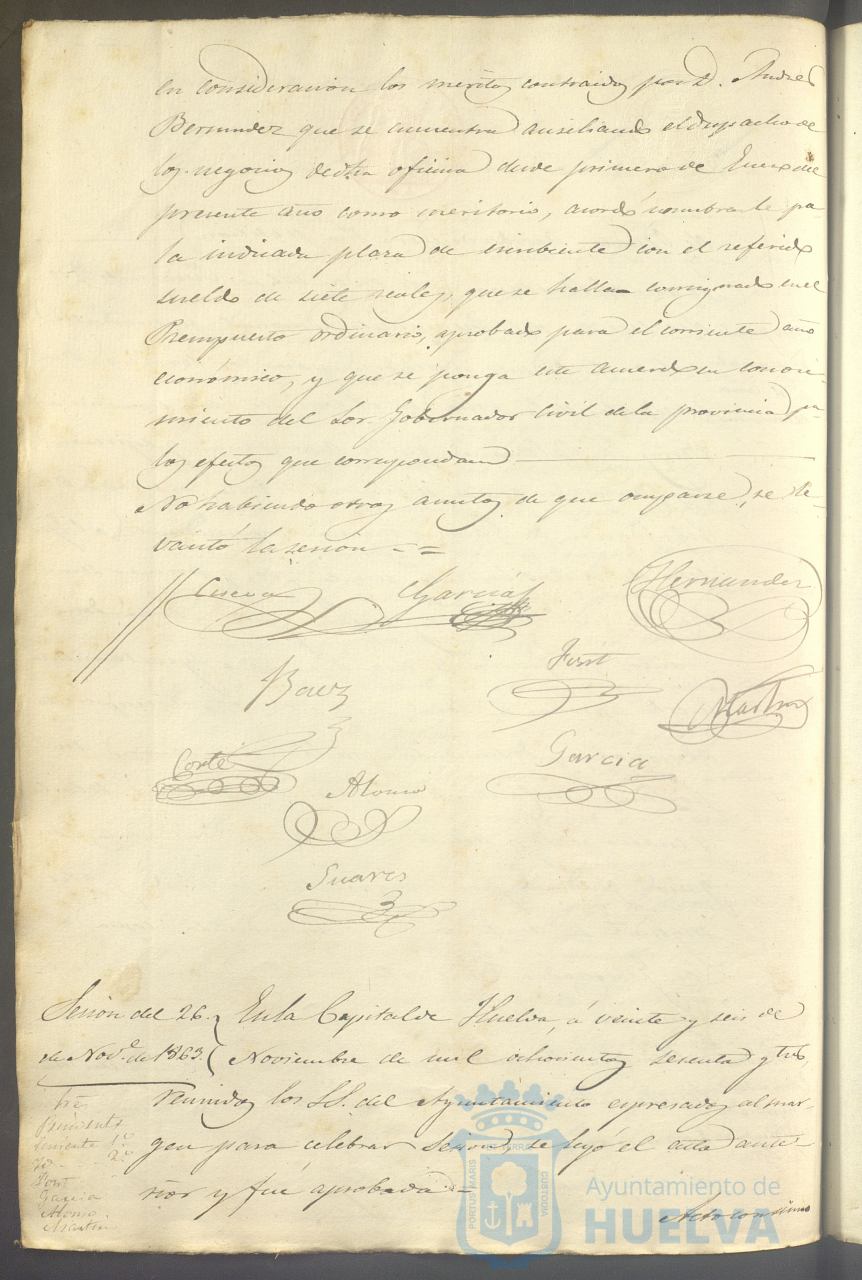 en consideracion los meritos contraidos por D. Andres
Bermudez que se encuentra auxiliando el despacho de
los negocios de dha oficina desde primero de Enero del
presente año como meritorio, acordó nombrarle pa
la indicada plaza de escribiente con el referido
sueldo de siete reales, que se halla consignado en el
Presupuesto ordinario, aprobado para el corriente año
económico, y que se ponga este acuerdo en conoci-
miento del Sor. Gobernador Civil de la provincia pa
los efectos que correspondan
No habiendo otros asuntos de que ocuparse, se le-
vantó la sesion - =
Garcia
Hernandez
Baez
Font
Martin
Corté
Garcia
Alonso
Suares
Sesion del 26
de Nove. de 1863.
En la Capital de Huelva, á veinte y seis de
Noviembre de mil ochocientos sesenta y tres,
reunidos los SS. del Ayuntamiento espresados al mar-
gen para celebrar Sesion, se leyó el acta ante-
rior y fué aprobada =
Presidente
Teniente 1º
Id 2º
Font
Garcia
Alonso
Martin
Acto continuo
PORTUS MARIS
ET TERRAE
CUSTODIA
Ayuntamiento de
HUELVA